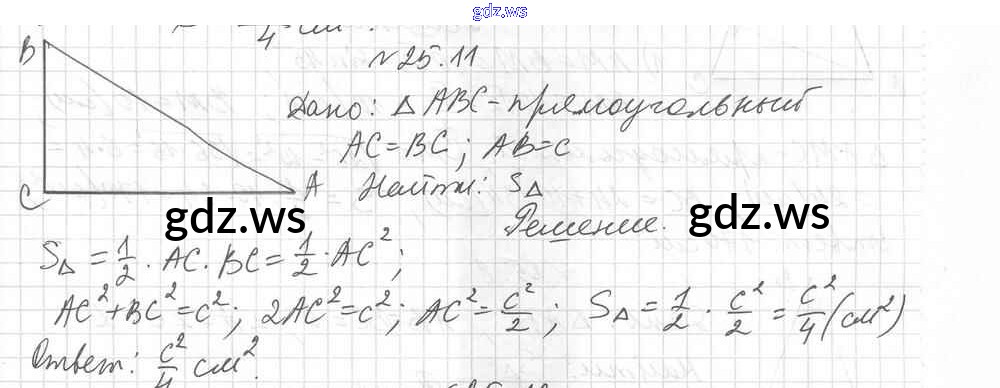 gdz.ws
4 см
№25.11
B
Дано: △ABC - прямоугольный
AC=BC; AB=c
C A Найти: S△
gdz.ws gdz.ws
Решение.
S△ = 1/2 · AC · BC = 1/2 · AC²;
AC²+BC²=c²; 2AC²=c²; AC²= c²/2; S△ = 1/2 · c²/2 = c²/4 (см²)
Ответ: c²/4 см².